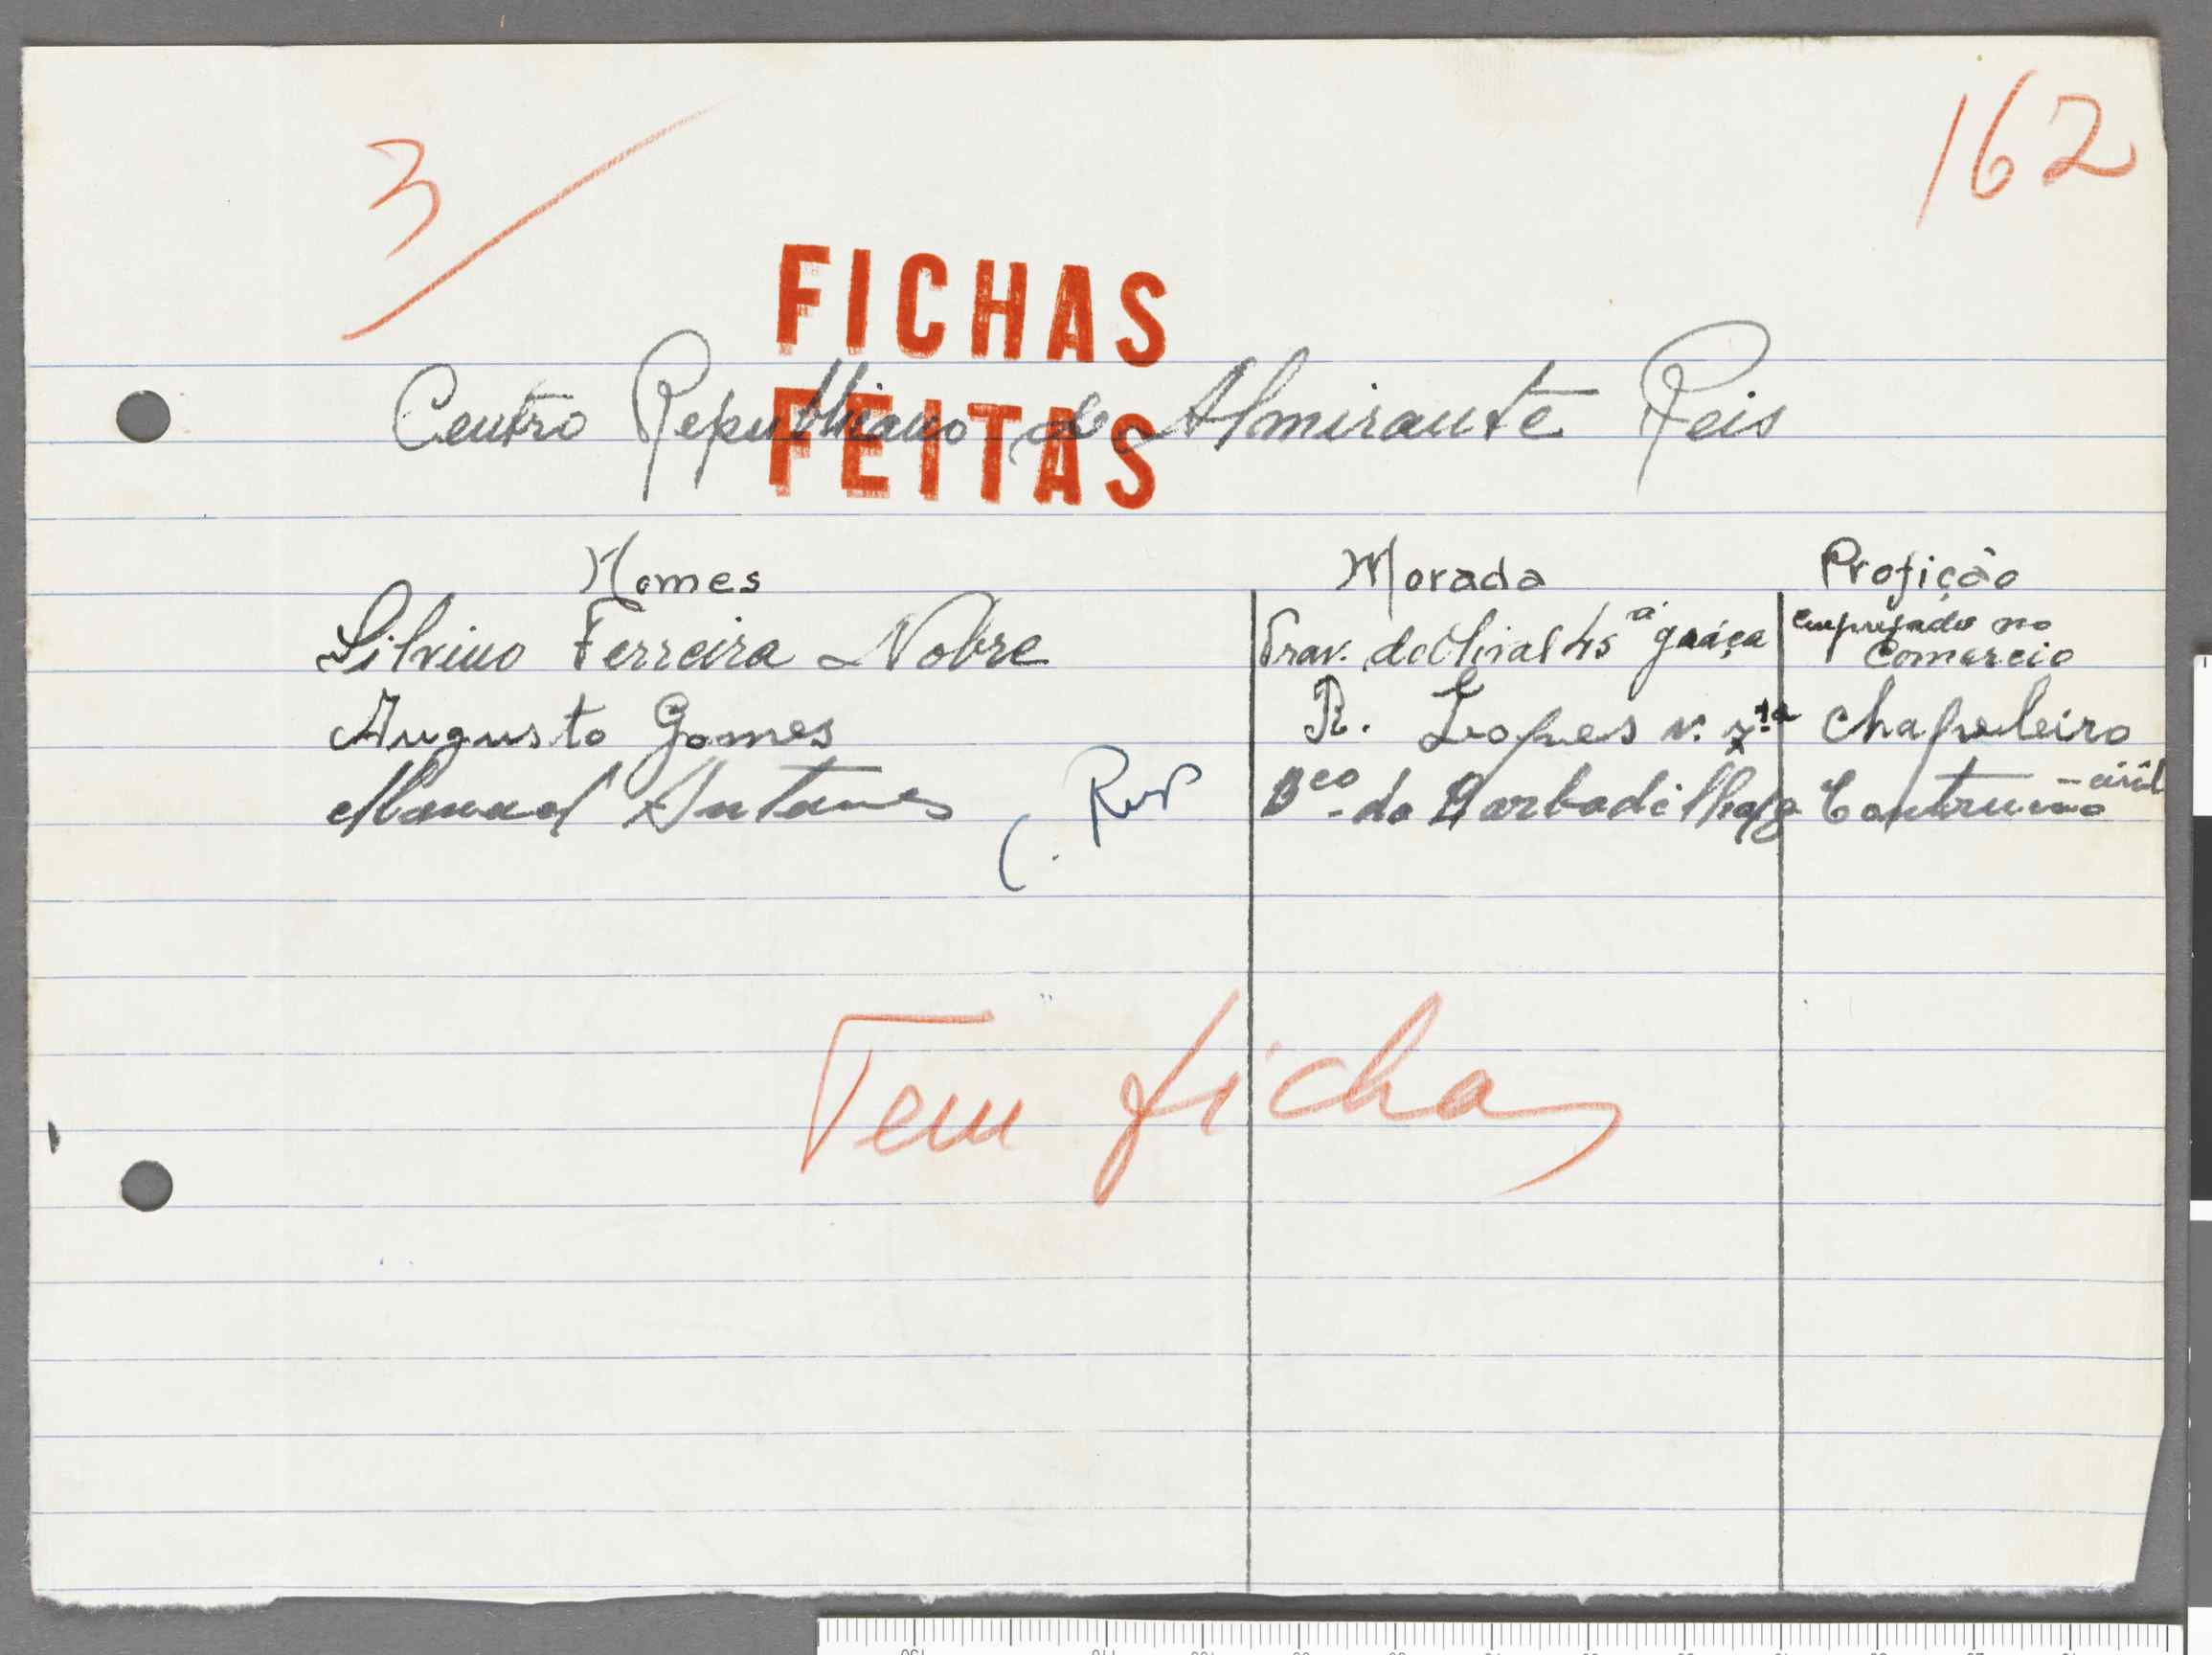 3
162
FICHAS
FEITAS
Centro Republicano de Almirante Reis
Nomes Morada Profição
Silvino Ferreira Nobre Trav. do Olival 45 á graça empregado no
Comercio
Augusto Gomes R. Lopes n. chapeleiro
Manuel Antunes Beco do civil
Tem ficha